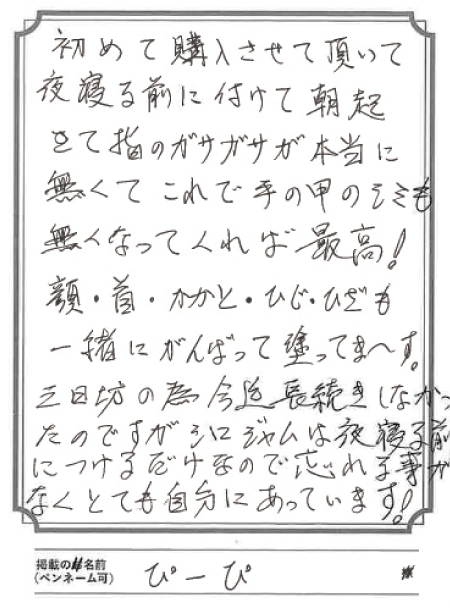 初めて購入させて頂いて
夜寝る前に付けて朝起
きて指のガサガサが本当に
無くてこれで手の甲のシミも
無くなってくれば最高!
顔・首・かかと・ひじ・ひざも
一緒にがんばって塗ってま〜す。
三日坊の為今迄長続きしなかっ
たのですがシロジャムは夜寝る前
につけるだけなので忘れる事が
なくとても自分にあっています!
掲載のお名前
(ペンネーム可) ぴーぴ 様